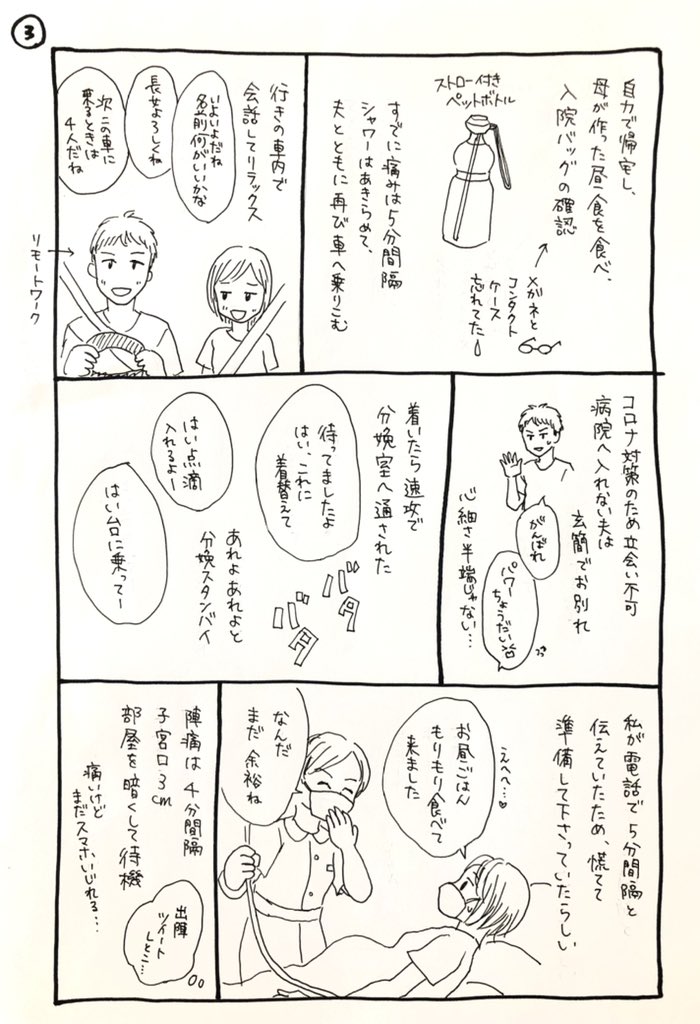 3
自力で帰宅し、
母が作った昼食を食べ、
入院バッグの確認
ストロー付き
ペットボトル
メガネと
コンタクト
ケース
忘れてた
すでに痛みは5分間隔
シャワーはあきらめて、
夫とともに再び車へ乗りこむ
行きの車内で
会話してリラックス
いよいよだね
名前何がいいかな
長女よろしくね
次この車に
乗るときは
4人だね
リモートワーク
コロナ対策のため立会い不可
病院へ入れない夫は
玄関でお別れ
がんばれ
パワー
ちょうだい
心細さ半端じゃない…
着いたら速攻で
分娩室へ通された
待ってましたよ
はい、これに
着替えて
バタ
バタ
はい点滴
入れるよー
あれよあれよと
分娩スタンバイ
はい台に乗ってー
私が電話で5分間隔と
伝えていたため、慌てて
準備して下さっていたらしい
えへへ…♡
お昼ごはん
もりもり食べて
来ました
なんだ
まだ余裕ね
陣痛は4分間隔
子宮口3cm
部屋を暗くして待機
痛いけど
まだスマホいじれる…
出陣
ツイート
しとこ…